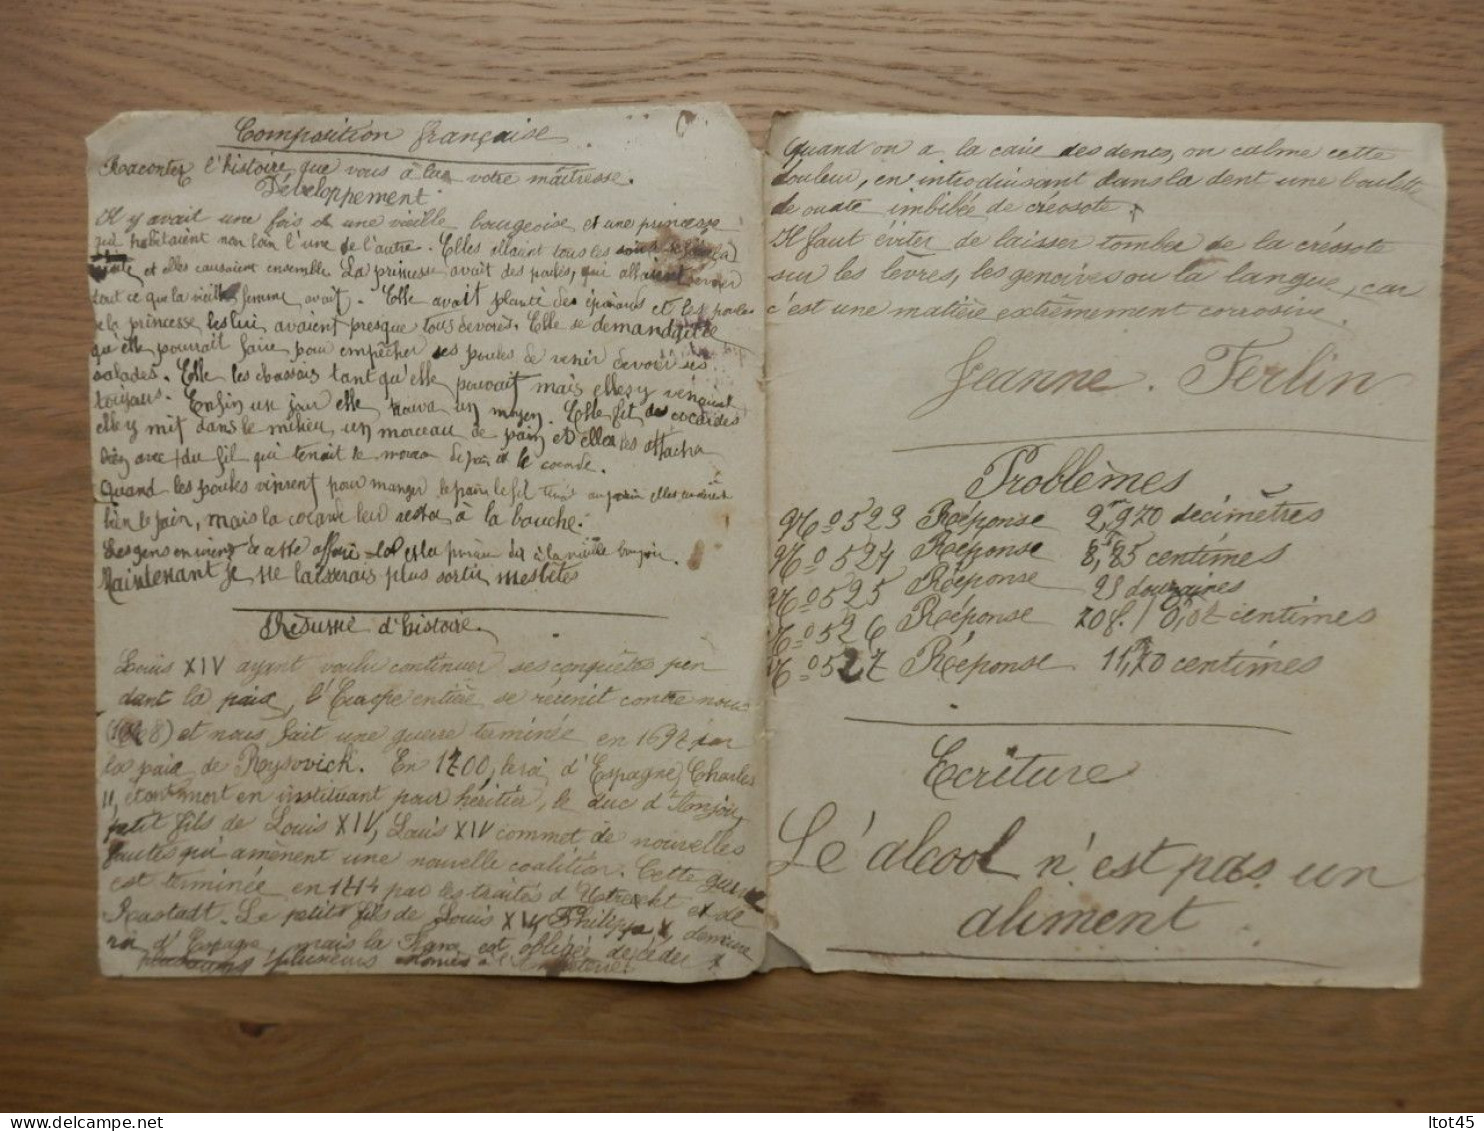 Composition française
Raconter l'histoire que vous a lu votre maîtresse.
Développement
Il y avait une fois une vieille bourgeoise et une princesse
qui habitaient non loin l'une de l'autre. Elles allaient tous les
et elles causaient ensemble La princesse avait des poules, qui allaient
tout ce que la vieille femme avait. Elle avait planté des épinards et les poules
de la princesse les lui avaient presque tous dévorés. Elle se demandait ce
qu'elle pourrait faire pour empêcher ses poules de venir dévorer ses
salades. Elle les chassais tant qu'elle pouvait mais elles y venaient
toujours. Enfin un jour elle trouva un moyen. Elle fit des cocardes
elle y mit dans le milieu, un morceau de pain et elle les attacha
bien avec du fil qui tenait le morceau de pain à la cocarde.
Quand les poules vinrent pour manger le pain le fil
bien le pain, mais la cocarde leur resta à la bouche.
Les gens en virent de cette affaire
Maintenant je ne laisserais plus sortir mes bêtes
Résumé d'histoire.
Louis XIV ayant voulu continuer ses conquêtes pen
dant la paix, l'Europe entière se réunit contre nous
(1688) et nous fait une guerre terminée en 1697 par
la paix de Rysovick. En 1700, le roi d'Espagne, Charles
II, étant mort en instituant pour héritier, le duc d'Anjou,
petit fils de Louis XIV, Louis XIV commet de nouvelles
fautes qui amènent une nouvelle coalition. Cette guerre
est terminée en 1714 par les traités d'Utrecht et de
Rastadt. Le petit fils de Louis XIV, Philippe V, demeure
roi d'Espagne, mais la France est obligée de céder
plusieurs colonies à l'Angleterre
Quand on a la carie des dents, on calme cette
douleur, en introduisant dans la dent une boulette
de ouate imbibée de créosote.
Il faut éviter de laisser tomber de la créosote
sur les lèvres, les gencives ou la langue, car
c'est une matière extrêmement corrosive.
Jeanne. Ferlin
Problèmes
No 523 Réponse 2,970 décimètres
No 524 Réponse 8,85 centimes
No 525 Réponse 25 douzaines
No 526 Réponse 70f. / 0,02 centimes
No 527 Réponse 11,70 centimes
Ecriture
Lé alcool n'est pas un
aliment.
ltot45